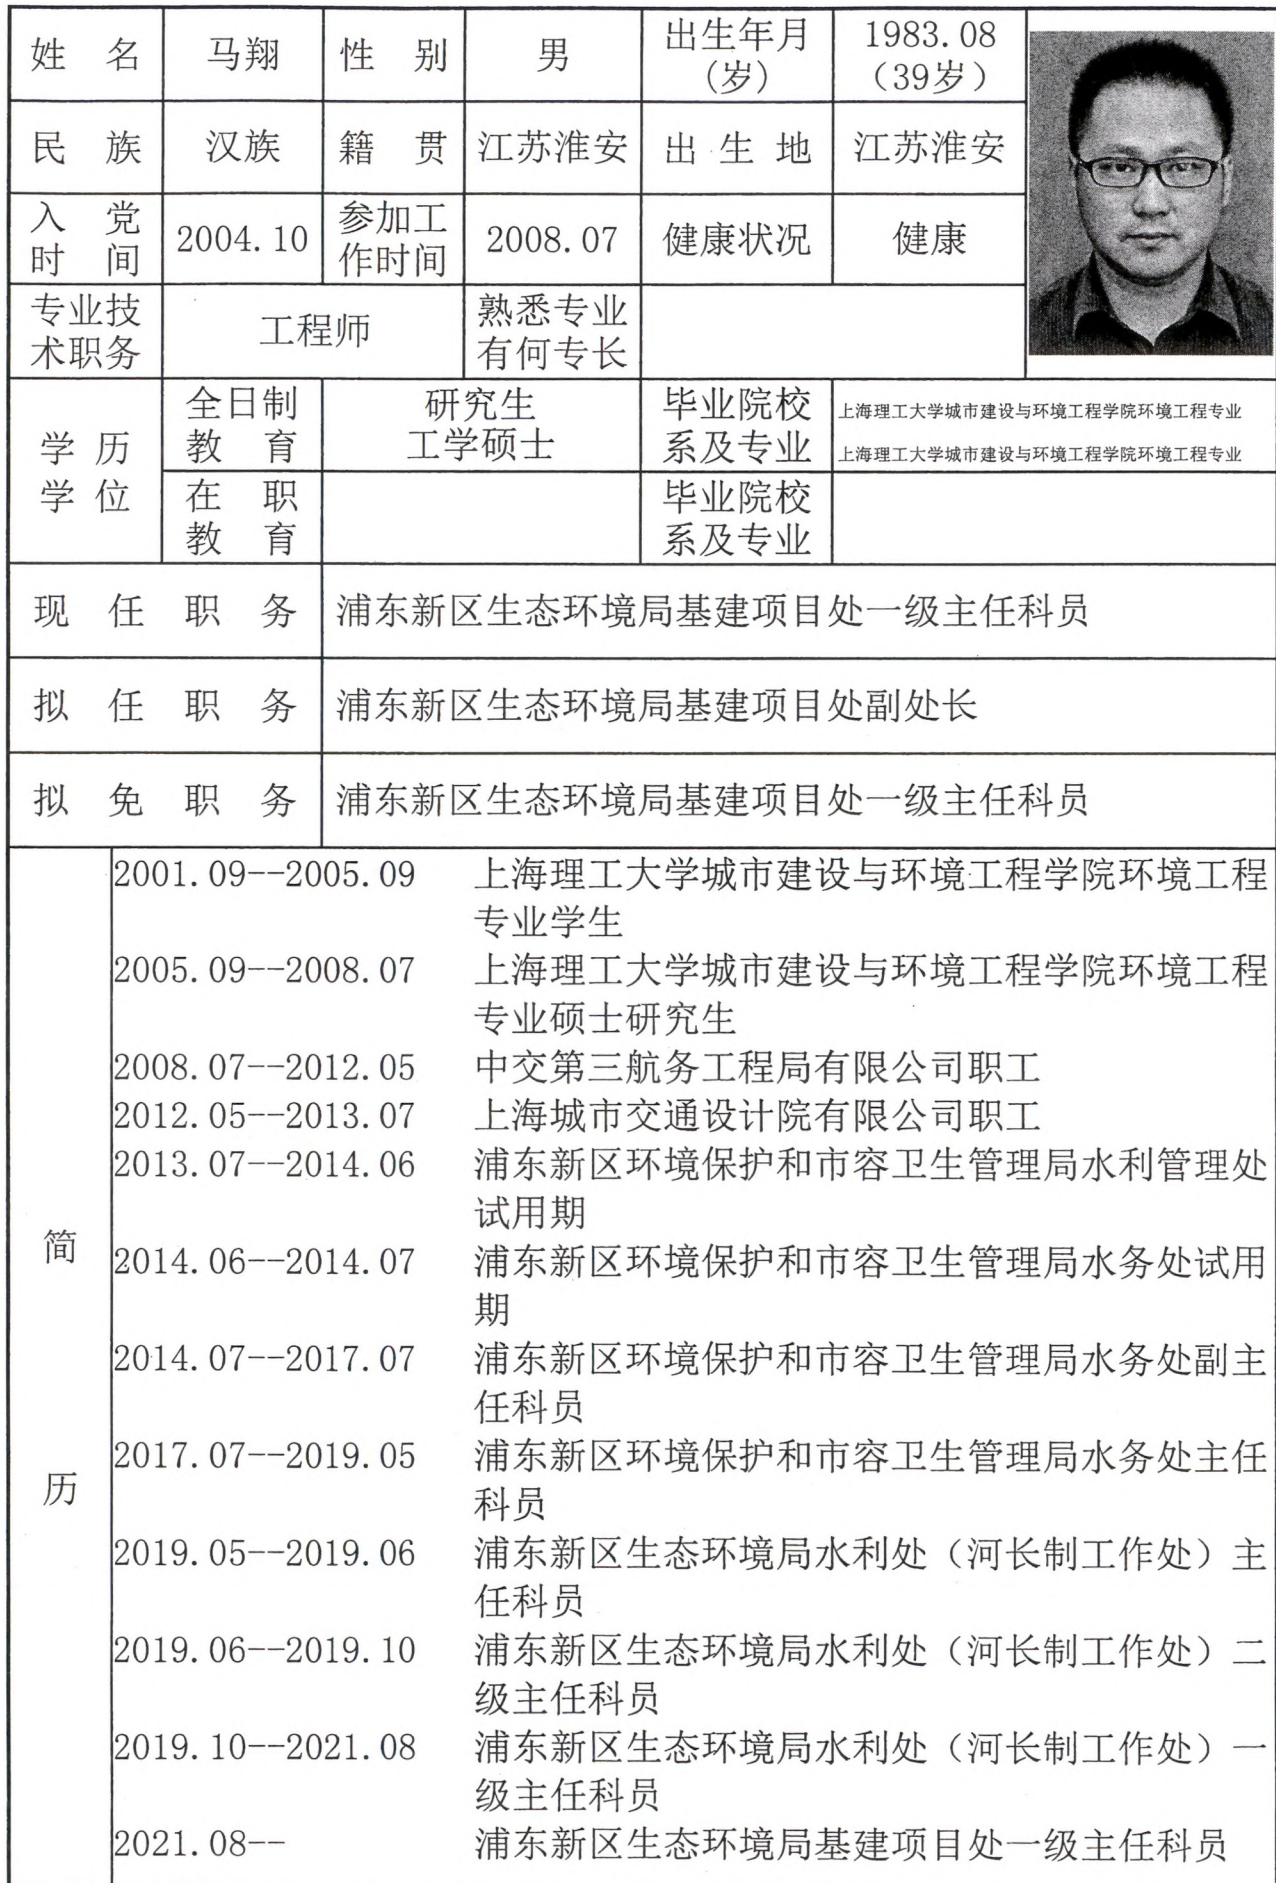 姓 名 马翔 性 别 男 出生年月 1983.08
(岁) （39岁）
民 族 汉族 籍 贯 江苏淮安 出 生 地 江苏淮安
入 党 2004.10 参加工 2008.07 健康状况 健康
时 间 作时间
专业技 工程师 熟悉专业
术职务 有何专长
学 历 全日制 研究生 毕业院校 上海理工大学城市建设与环境工程学院环境工程专业
教 育 工学硕士 系及专业 上海理工大学城市建设与环境工程学院环境工程专业
学 位 在 职 毕业院校
教 育 系及专业
现 任 职 务 浦东新区生态环境局基建项目处一级主任科员
拟 任 职 务 浦东新区生态环境局基建项目处副处长
拟 免 职 务 浦东新区生态环境局基建项目处一级主任科员
简 历
2001.09--2005.09 上海理工大学城市建设与环境工程学院环境工程
专业学生
2005.09--2008.07 上海理工大学城市建设与环境工程学院环境工程
专业硕士研究生
2008.07--2012.05 中交第三航务工程局有限公司职工
2012.05--2013.07 上海城市交通设计院有限公司职工
2013.07--2014.06 浦东新区环境保护和市容卫生管理局水利管理处
试用期
2014.06--2014.07 浦东新区环境保护和市容卫生管理局水务处试用
期
2014.07--2017.07 浦东新区环境保护和市容卫生管理局水务处副主
任科员
2017.07--2019.05 浦东新区环境保护和市容卫生管理局水务处主任
科员
2019.05--2019.06 浦东新区生态环境局水利处（河长制工作处）主
任科员
2019.06--2019.10 浦东新区生态环境局水利处（河长制工作处）二
级主任科员
2019.10--2021.08 浦东新区生态环境局水利处（河长制工作处）一
级主任科员
2021.08-- 浦东新区生态环境局基建项目处一级主任科员